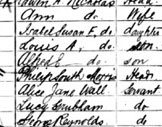 Edwin A. Nicholas Head
Ann do. Wife
Isabel Susan E. do. daughter
Louis A. do. son
Alfred E. do son
Philip South Morris Head
Alice Jane Wall Servant
Lucy do.
George Reynolds do.